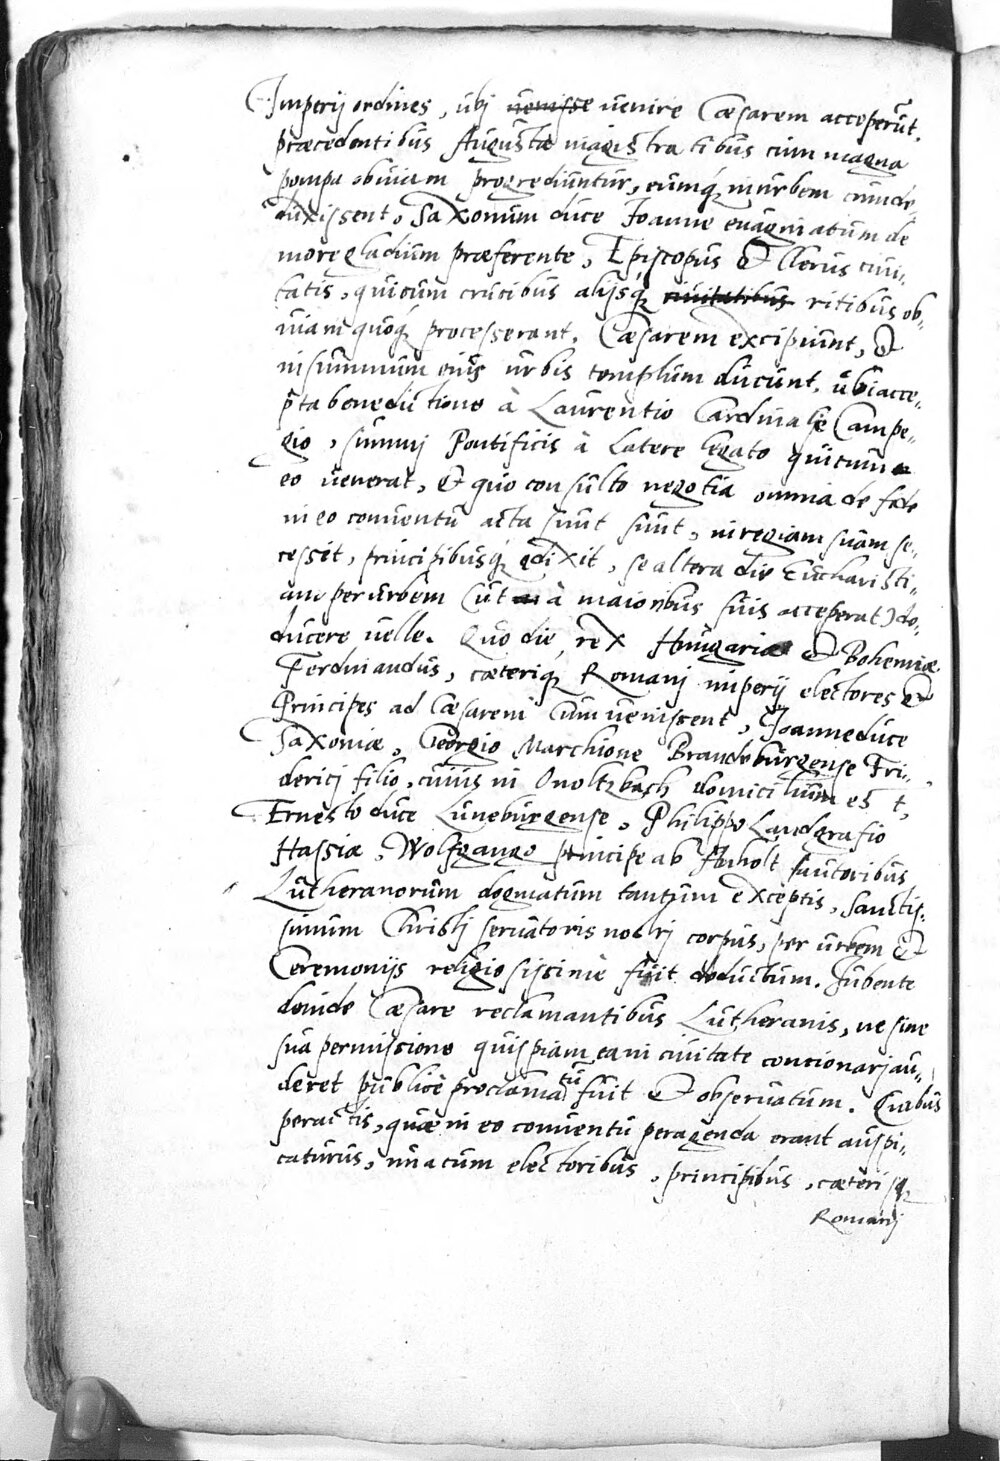 Imperij ordines, ubj venisse venire Cæsarem acceperūt.
præcedentibus Augustæ magistratibus cum magna
pompa obuiam progrediuntur, eumq́ in urbem cum de-
duxissent, Saxonum duce Joanne euaginatum de
more gladium præferente, Episcopus & Clerus ciui-
tatis, qui cum crucibus alijsq́ ciuitatibus ritibus ob-
uiam quoq́ processerant, Cæsarem excipiunt, &
in summum eius urbis templum ducunt. ubi acce-
pta benedictione à Laurentio Cardinale Campe-
gio, summj Pontificis à latere legato qui cum
eo uenerat, & quo consulto negotia omnia de fide
in eo conuentu acta sunt sunt, in regiam suam se-
cessit, principibusq́ edixit, se altera die Eucharisti-
am per urbem (ut à maioribus suis acceperat) do-
ducere uelle. Quo die, rex Hungariæ & Bohemiæ
Ferdinandus, cæteriq́ Romanj imperij electores &
Principes ad Cæsarem cum uenissent, Joanne duce
Saxoniæ, Georgio Marchione Brandeburgense Fri-
dericj filio, cuius in Onoltzbach domicilium est,
Ernesto duce Luneburgense, Philippo Landgrafio
Hassiæ, Wolfgango principe ab Anholt fautoribus
Lutheranorum dogmatum tantum exceptis, sanctis-
simum Christj seruatoris nostrj corpus, per urbem &
Ceremonijs religiosissimè fuit deductum. Jubente
deinde Cæsare reclamantibus Lutheranis, ne sine
sua permissione quispiam ea in ciuitate concionarj au-
deret publicè proclamatū fuit & obseruatum. Quibus
peractis, quæ in eo conuentu peragenda erant auspi-
caturus, una cum electoribus, principibus, cæterisq́
Romanj